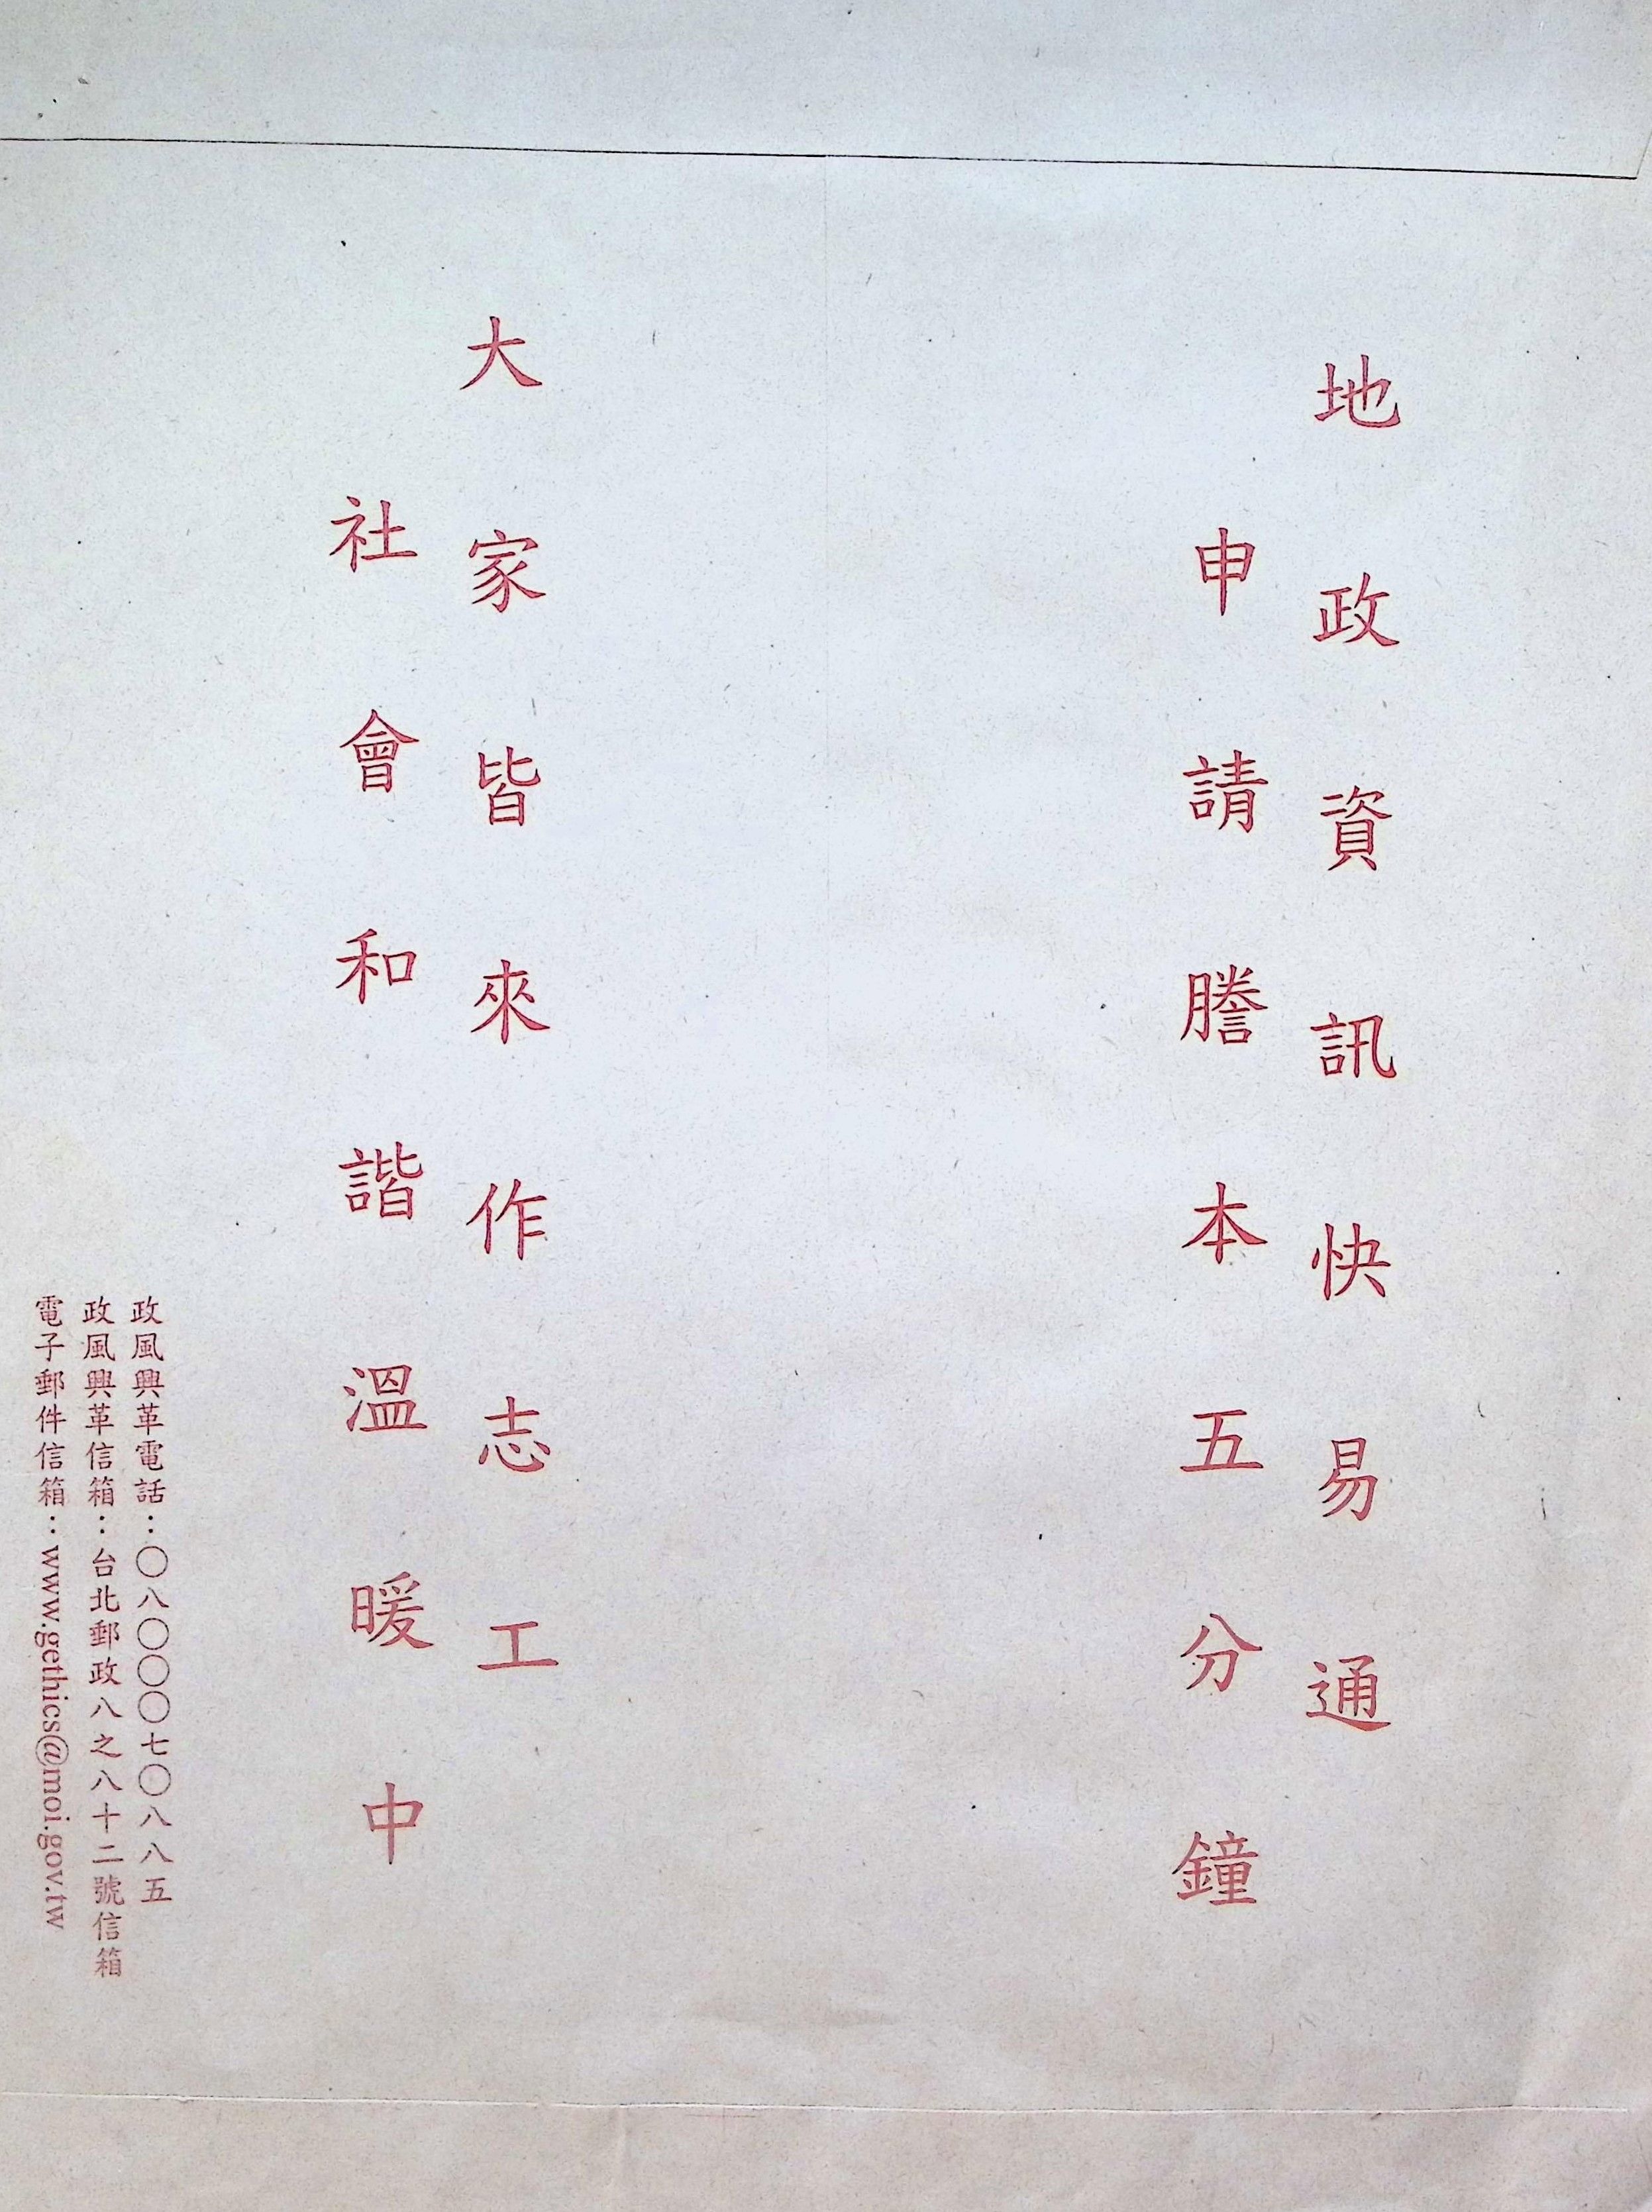 地政資訊快易通
申請謄本五分鐘
大家皆來作志工
社會和諧溫暖中
政風興革電話：〇八〇〇〇七〇八八五
政風興革信箱：台北郵政八之八十二號信箱
電子郵件信箱：www.gethics@moi.gov.tw